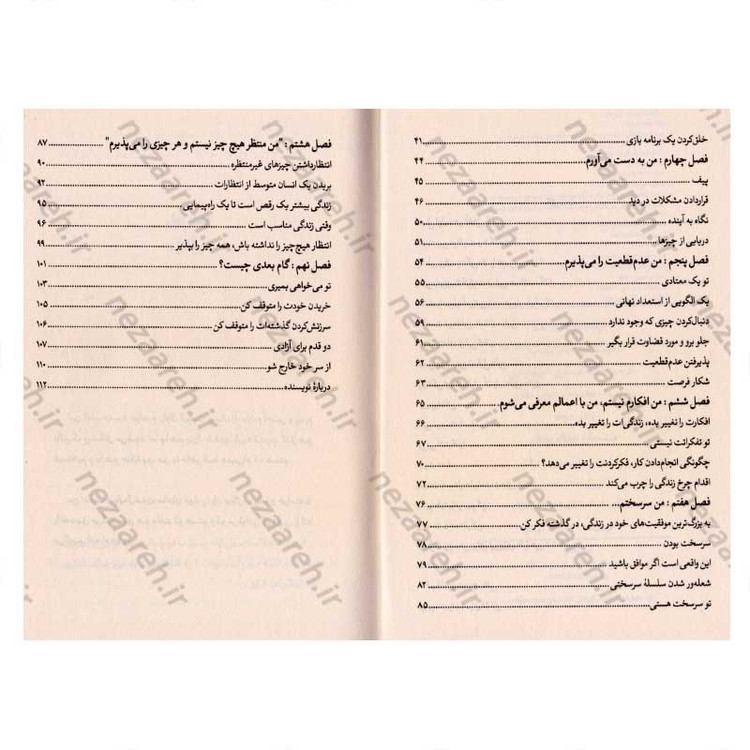 خلق‌کردن یک برنامه بازی ..... ۴۱
فصل چهارم : من به دست می‌آورم ..... ۴۴
پیف ..... ۴۵
قراردادن مشکلات در دید ..... ۴۶
نگاه به آینده ..... ۵۰
دریایی از چیزها ..... ۵۱
فصل پنجم : من عدم‌قطعیت را می‌پذیرم ..... ۵۴
تو یک معتادی ..... ۵۵
یک الگویی از استعداد نهانی ..... ۵۶
دنبال‌کردن چیزی که وجود ندارد ..... ۵۹
جلو برو و مورد قضاوت قرار بگیر ..... ۶۱
پذیرفتن عدم‌قطعیت ..... ۶۲
شکار فرصت ..... ۶۳
فصل ششم : من افکارم نیستم، من با اعمالم معرفی می‌شوم ..... ۶۵
افکارت را تغییر بده، زندگی‌ات را تغییر بده ..... ۶۶
تو تفکراتت نیستی ..... ۶۷
چگونگی انجام‌دادن کار، فکرکردنت را تغییر می‌دهد؟ ..... ۷۰
اقدام چرخ زندگی را چرب می‌کند ..... ۷۲
فصل هفتم : من سرسختم... ..... ۷۶
به بزرگ‌ترین موفقیت‌های خود در زندگی، در گذشته فکر کن ..... ۷۷
سرسخت بودن ..... ۷۸
این واقعی است اگر موافق باشید ..... ۷۹
شعله‌ور شدن سلسلهٔ سرسختی ..... ۸۲
تو سرسخت هستی ..... ۸۵
فصل هشتم : "من منتظر هیچ چیز نیستم و هر چیزی را می‌پذیرم" ..... ۸۷
انتظارداشتن چیزهای غیرمنتظره ..... ۹۰
بریدن یک انسان متوسط از انتظارات ..... ۹۲
زندگی بیشتر یک رقص است تا یک راه‌پیمایی ..... ۹۵
وقتی زندگی مناسب است ..... ۹۶
انتظار هیچ‌چیز را نداشته باش، همه چیز را بپذیر ..... ۹۹
فصل نهم : گام بعدی چیست؟ ..... ۱۰۱
تو می‌خواهی بمیری ..... ۱۰۳
خریدن خودت را متوقف کن ..... ۱۰۵
سرزنش‌کردن گذشته‌ات را متوقف کن ..... ۱۰۶
دو قدم برای آزادی ..... ۱۰۷
از سر خود خارج شو ..... ۱۱۰
دربارهٔ نویسنده ..... ۱۱۲
nezaareh.ir